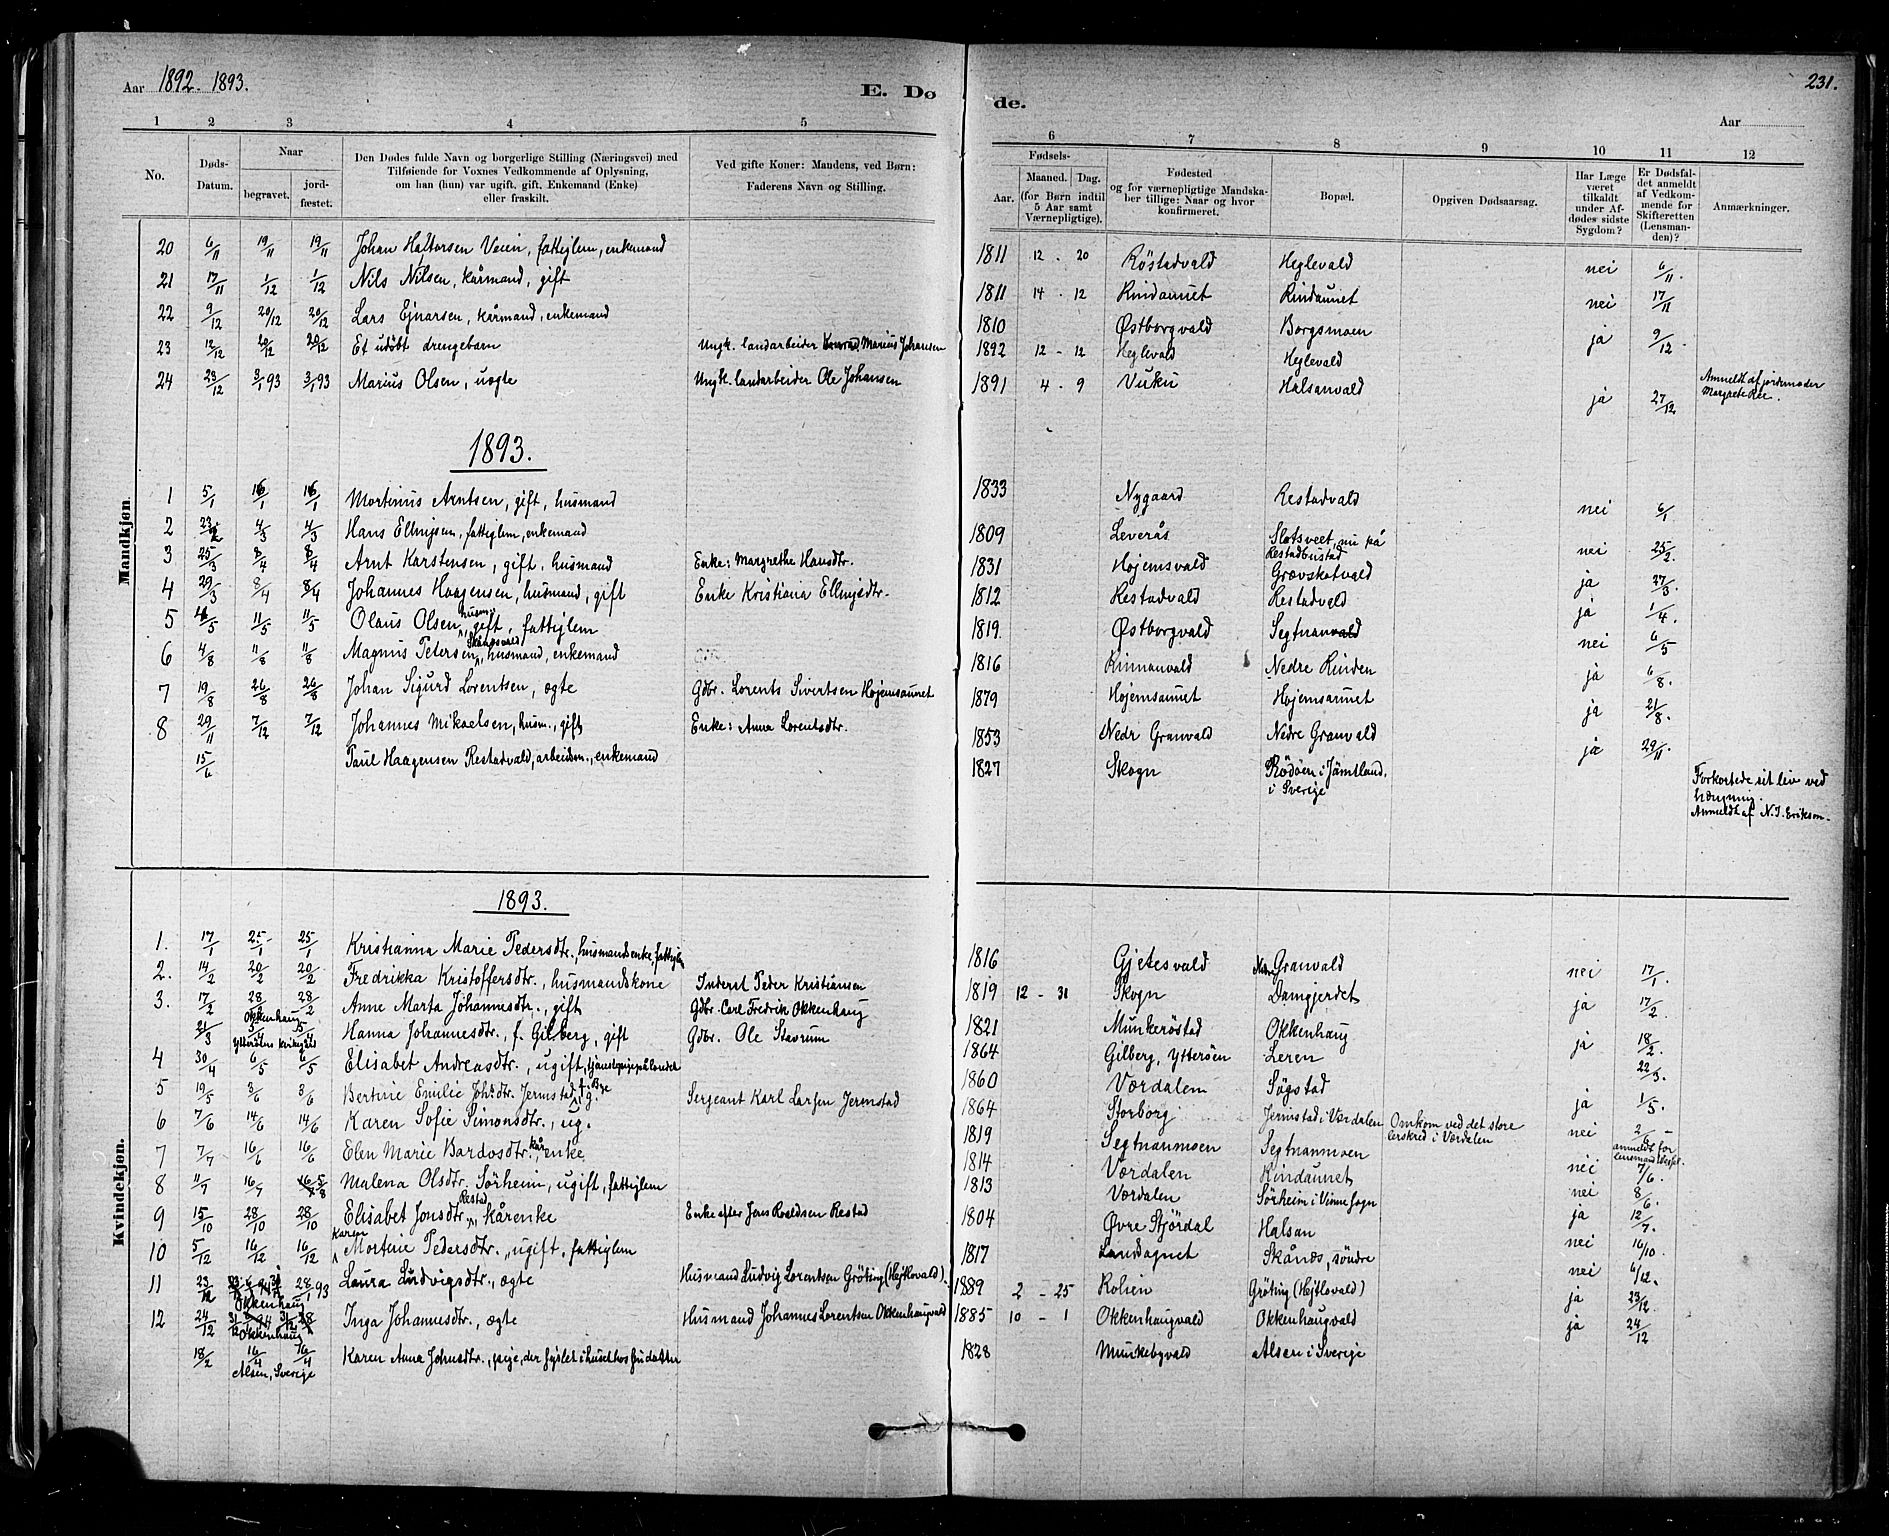 Aar 1892. 1893.
E. Dø
de.
231.
Aar
1 2 3 4 5
6 7 8 9 10 11 12
No.
Døds-Datum.
Naar
begravet.
jord-fæstet.
Den Dødes fulde Navn og borgerlige Stilling (Næringsvei) med
Tilføiende for Voxnes Vedkommende af Oplysning,
om han (hun) var ugift, gift, Enkemand (Enke)
eller fraskilt.
Ved gifte Koner: Mandens, ved Børn:
Faderens Navn og Stilling.
Fødsels-
Aar.
Maaned. Dag.
(for Børn indtil
5 Aar samt
Værnepligtige).
Fødested
og for værnepligtige Mandska-
ber tillige: Naar og hvor
konfirmeret.
Bopæl.
Opgiven Dødsaarsag.
Har Læge
været
tilkaldt
under Af-
dødes sidste
Sygdom?
Er Dødsfal-
det anmeldt
af Vedkom-
mende for
Skifteretten
(Lensman-
den)?
Anmærkninger.
20 6/11 19/11 19/11 Johan Haftorsen Veien, fattiglem, enkemand 1811 12 - 20 Röstadvald Heglevald nei 6/11.
21 17/11 1/12 1/12 Nils Nilsen, kårmand, gift 1811 14 - 12 Rindaunet Rindaunet nei 17/11
22 9/12 20/12 20/12 Lars Ejnarsen, kårmand, enkemand 1810 Østborgvald Borgsmoen ja 9/12.
23 12/12 20/12 20/12 Et udöbt drengebarn Ungk. landarbeider Marius Johansen 1892 12 - 12 Heglevald Heglevald
24 23/12 3/1 93 3/1 93 Marius Olsen, uægte Ungk. landarbeider Ole Johansen 1891 4 - 9 Vuku Halsanvald ja 27/12
Anmeldt af jordemoder
Margrete Ree.
1893.
Mandkjøn.
1 5/1 16/1 16/1 Mortinus Arntsen, gift, husmand 1833 Nygaard Restadvald nei 6/1
2 23/2 4/3 4/3 Hans Ellingsen, fattiglem, enkemand 1809 Leverås Slotsveet, nu på Restadbustad nei 25/2.
3 25/3 8/4 8/4 Arnt Karstensen, gift, husmand Enke: Margrethe Hansdtr. 1831 Hojemsvald Grævskotvald ja 27/3.
4 29/3 8/4 8/4 Johannes Haagensen, husmand, gift Enke Kristiana Ellingsdtr. 1812 Restadvald Restadvald ja 1/4.
5 4/5 11/5 11/5 Olaus Olsen, husm., gift, fattiglem 1819. Østborgvald Segtnanvald nei 6/5
6 4/8 11/8 11/8 Magnus Petersen Skånesvald, husmand, enkemand 1816 Rinnanvald Nedre Rinden ja 6/8.
7 19/8 26/8 26/8 Johan Sigurd Lorentsen, ægte Gdbr. Lorents Sivertsen Hojemsaunet 1879 Hojemsaunet Hojemsaunet ja 21/8.
8 29/11 7/12 7/12 Johannes Mikaelsen, husm., gift Enke: Anna Lorentsdtr. 1853 Nedr Granvald Nedre Granvald ja 29/11.
15/6 Paul Haagensen Restadvald, arbeidsm., enkemand 1827 Skogn Rödöen i Jämtland, i Sverige
Forkortede sit liv ved
hængning.
Anmeldt af N. J. Erikson.
1893.
Kvindekjøn.
1. 17/1 25/1 25/1 Kristianna Marie Pedersdtr., husmandsenke, fattiglem 1816 Gjetesvald Nedre Granvald nei 17/1.
2. 14/2 20/2 20/2 Fredrikka Kristoffersdtr., husmandskone Inderst Peder Kristiansen 1819 12 - 31 Skogn Damgjerdet ja 17/2.
3. 17/2 28/2 28/2 Anne Marta Johannesdtr., gift Gdbr. Carl Fredrik Okkenhaug 1821 Munkeröstad Okkenhaug ja 18/2.
Okkenhaug
21/3 5/4 5/4 Hanna Johannesdtr., f. Gilberg, gift Gdbr. Ole Stavrum 1864 Gilberg, Ytterøen Leren 22/3.
Ytterøens kirkegård
4 30/4 6/5 6/5 Elisabet Andreasdtr., ugift, 1860 Værdalen Sögstad ja 1/5.
5 19/5 3/6 3/6 Bertine Emilie Johsdtr. Jermstad f. Bye g. Sergeant Karl Larsen Jermstad 1864 Storborg Jermstad i Værdalen Omkom ved det store lerskred i Værdalen nei 2/6
6 7/6 14/6 14/6 Karen Sofie Simonsdtr., ug. 1819 Segtnanmoen Segtnanmoen nei 7/6.
7 7/7 16/6 16/6 Elen Marie Bardosdtr., kårenke 1814 Værdalen Rindaunet nei 8/6.
8 11/7 16/7 5/8 Malena Olsdtr. Sörheim, ugift, fattiglem 1813 Værdalen Sörheim i Vinne sogn ja 12/7.
9 15/10 28/10 28/10 Elisabet Jonsdtr. Restad, kårenke Enke efter Jens Roaldsen Restad 1804 Øvre Stjördal Halsan nei 16/10.
10 5/12 16/12 16/12 Karen Mortine Pedersdtr., ugift, fattiglem 1817 Skånes, søndre nei 6/12.
11 23/12 28/1 93 Laura Ludvigsdtr., ægte Husmand Ludvig Lorentsen Gröting 1889 2 - 25 Gröting ja 23/12.
Okkenhaug
12 24/12 Inga Johannesdtr., ægte Husmand Johannes Lorentsen Okkenhaugvald 1885 10 - 1 Okkenhaugvald Okkenhaugvald ja 24/12
Okkenhaug
18/2 16/4 16/4 Karen Anna Johnsdtr., pige, 1828 Munkebyvald Alsen i Sverige
Alsen, Sverige